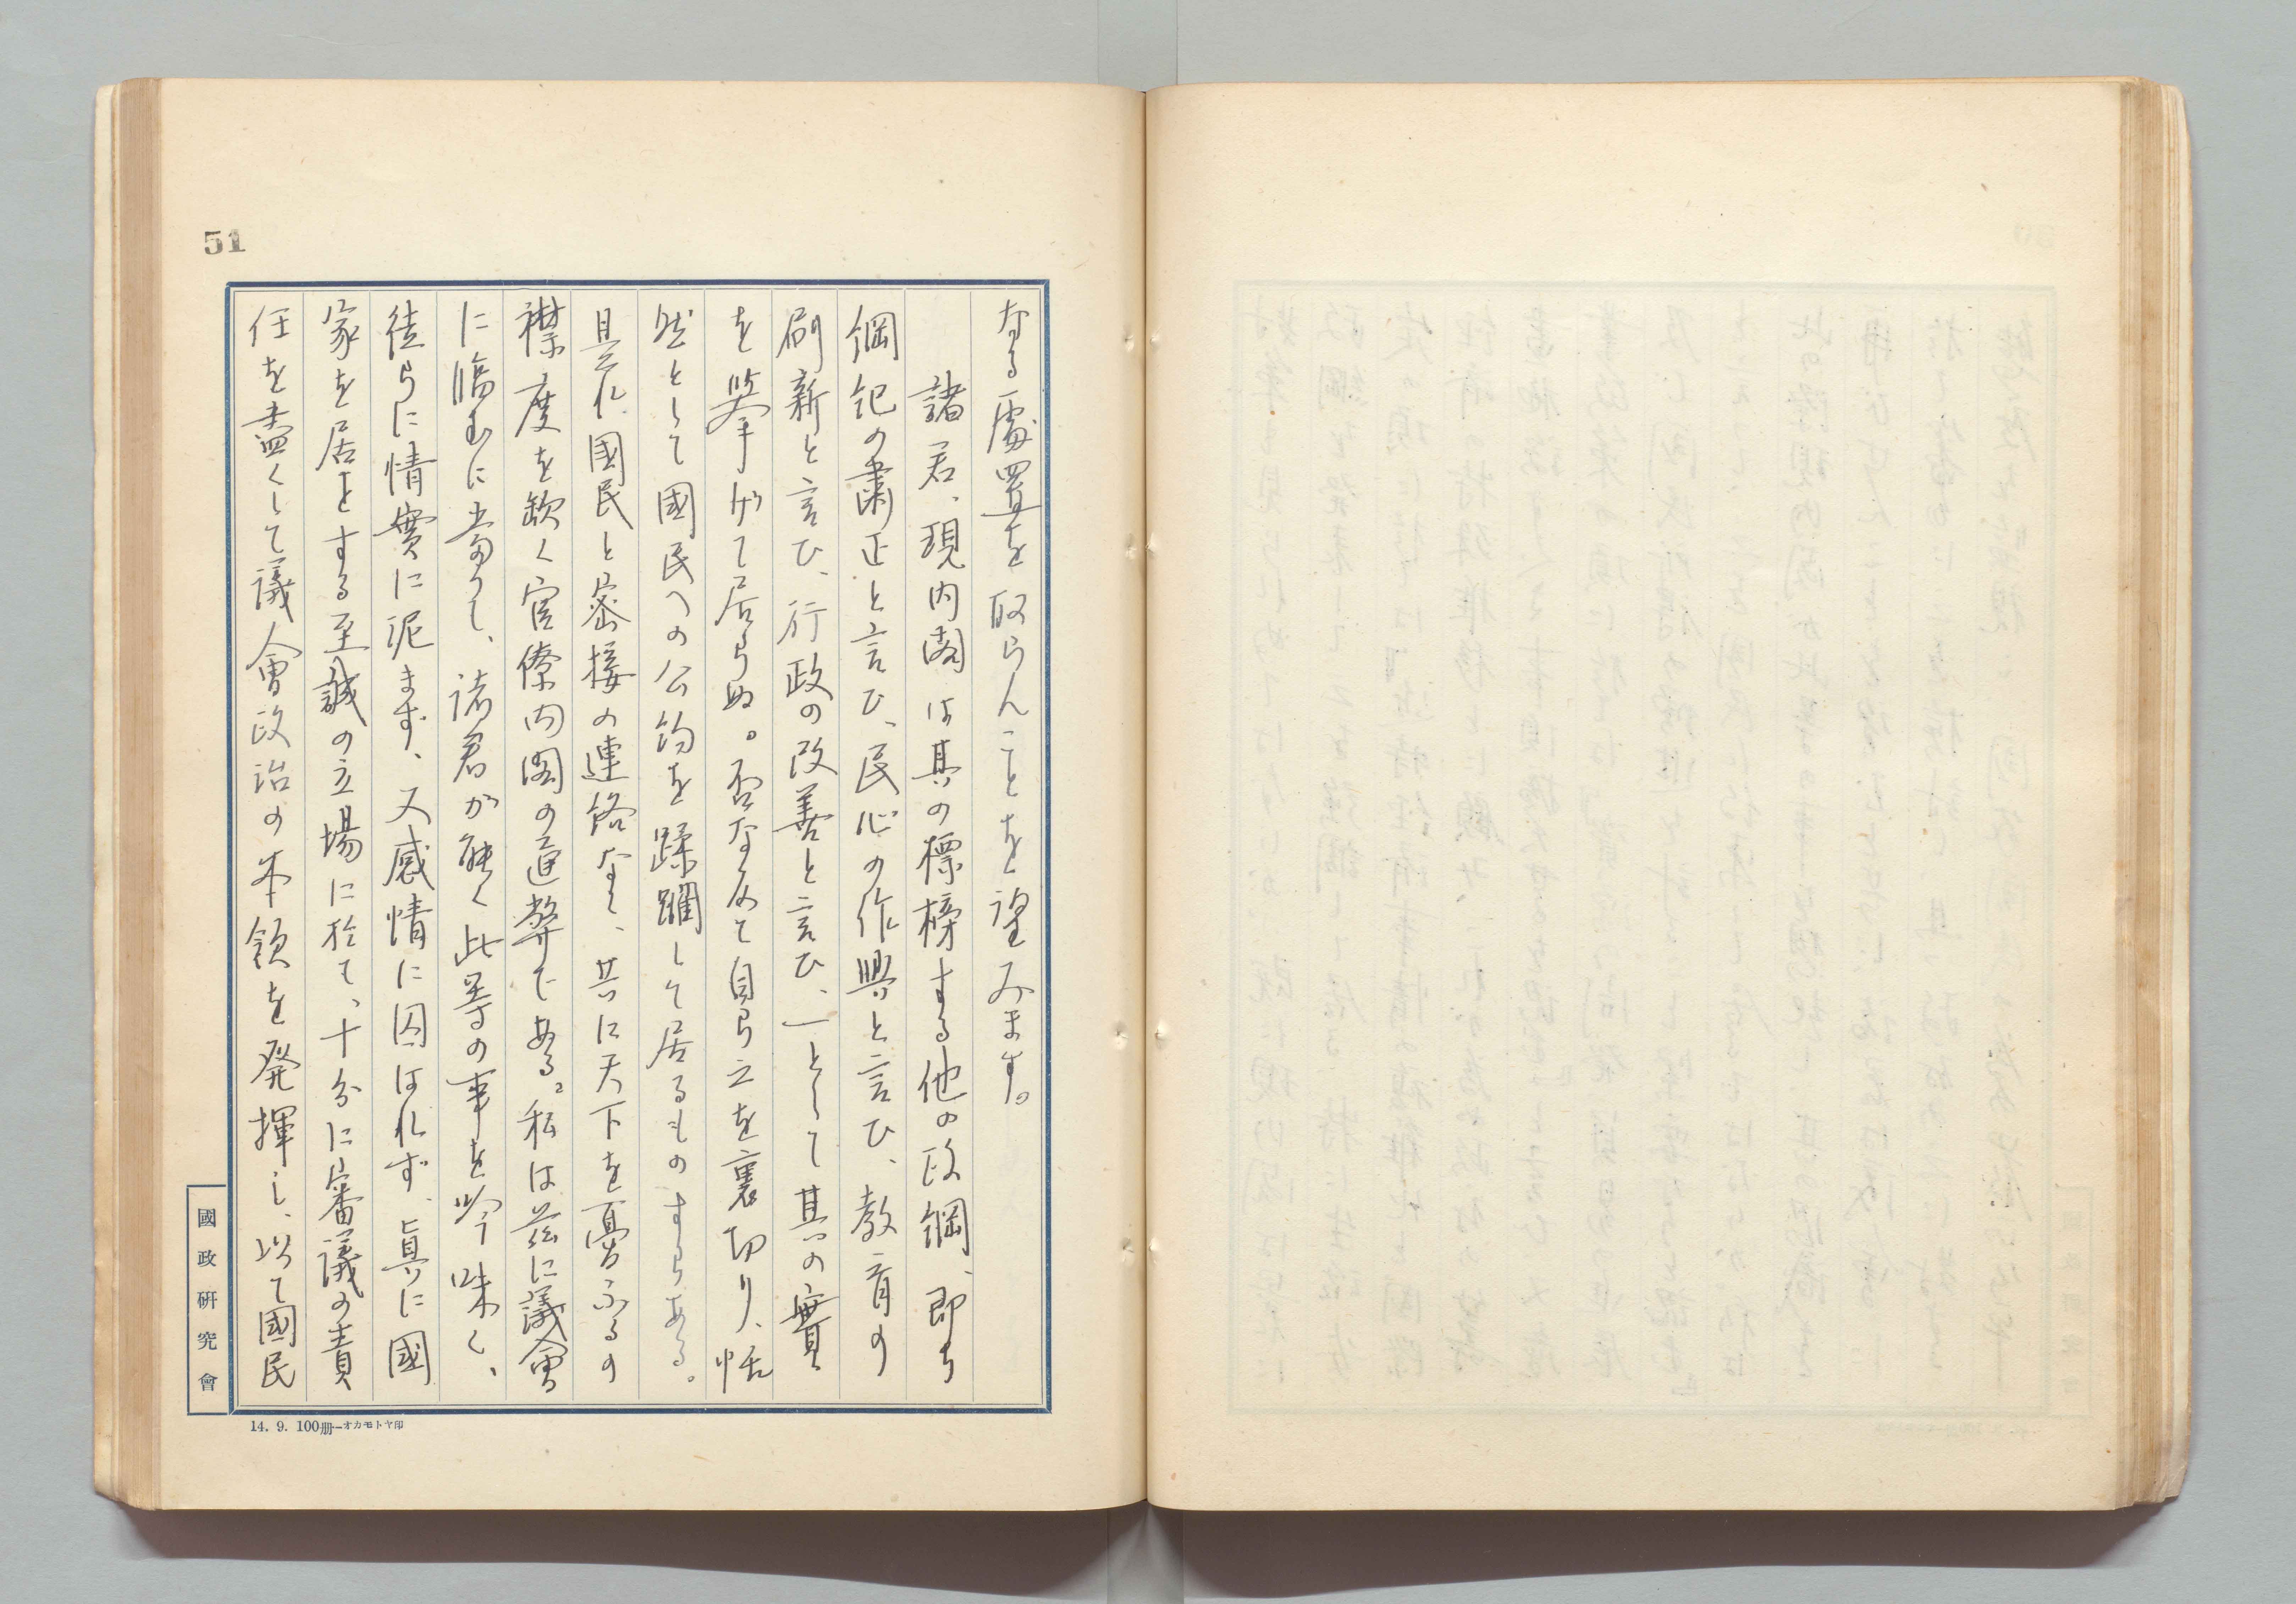 51
なる處置を取らんことを望みます。
諸君、現内閣は其の標榜する他の政綱、即ち
綱紀の肅正と言ひ、民心の作興と言ひ、教育の
刷新と言ひ、行政の改善と言ひ、一として其の實
を擧げて居らぬ。否な反て自ら之を裏切り、恬
然として國民への公約を蹂躙して居るものすらある。
是れ國民と密接の連絡なく、共に天下を憂ふるの
襟度を欠く官僚内閣の通弊である。私は茲に議會
に臨むに當りて、諸君が能く此等の事を吟味し、
徒らに情實に泥まず、又感情に囚はれず、眞に國
家を居とする至誠の立場に於て、十分に審議の責
任を盡くして議會政治の本領を発揮し、以て國民
國政研究會
14. 9. 100冊—オカモトヤ印